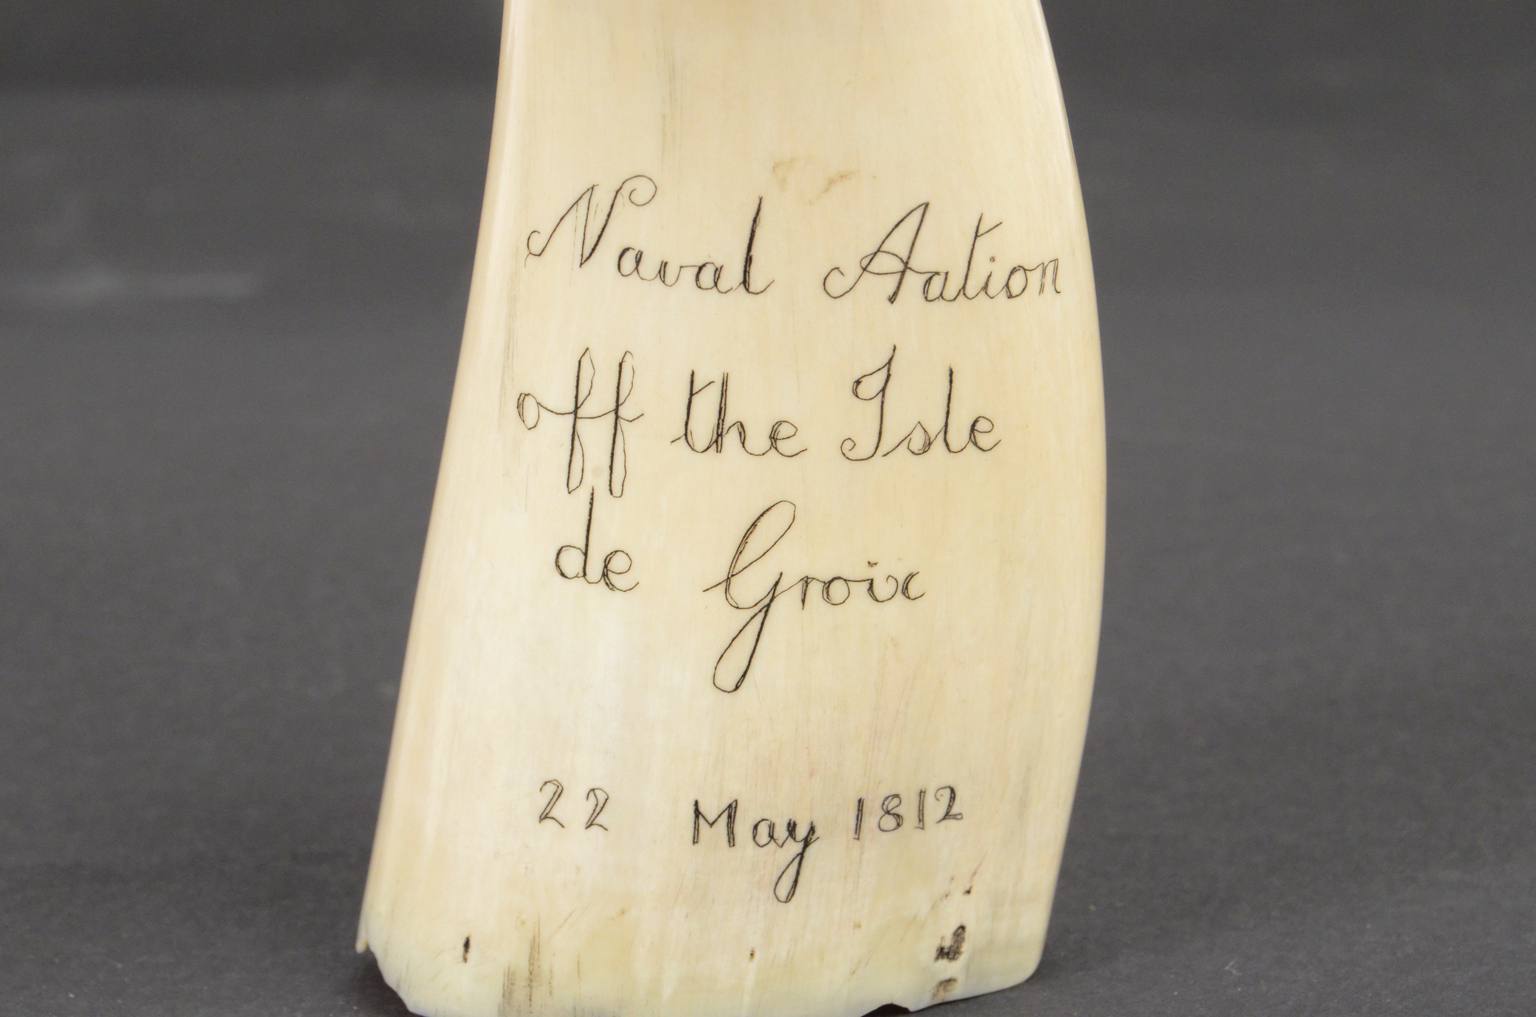 Naval Aation
off the Isle
de Groix
22 May 1812